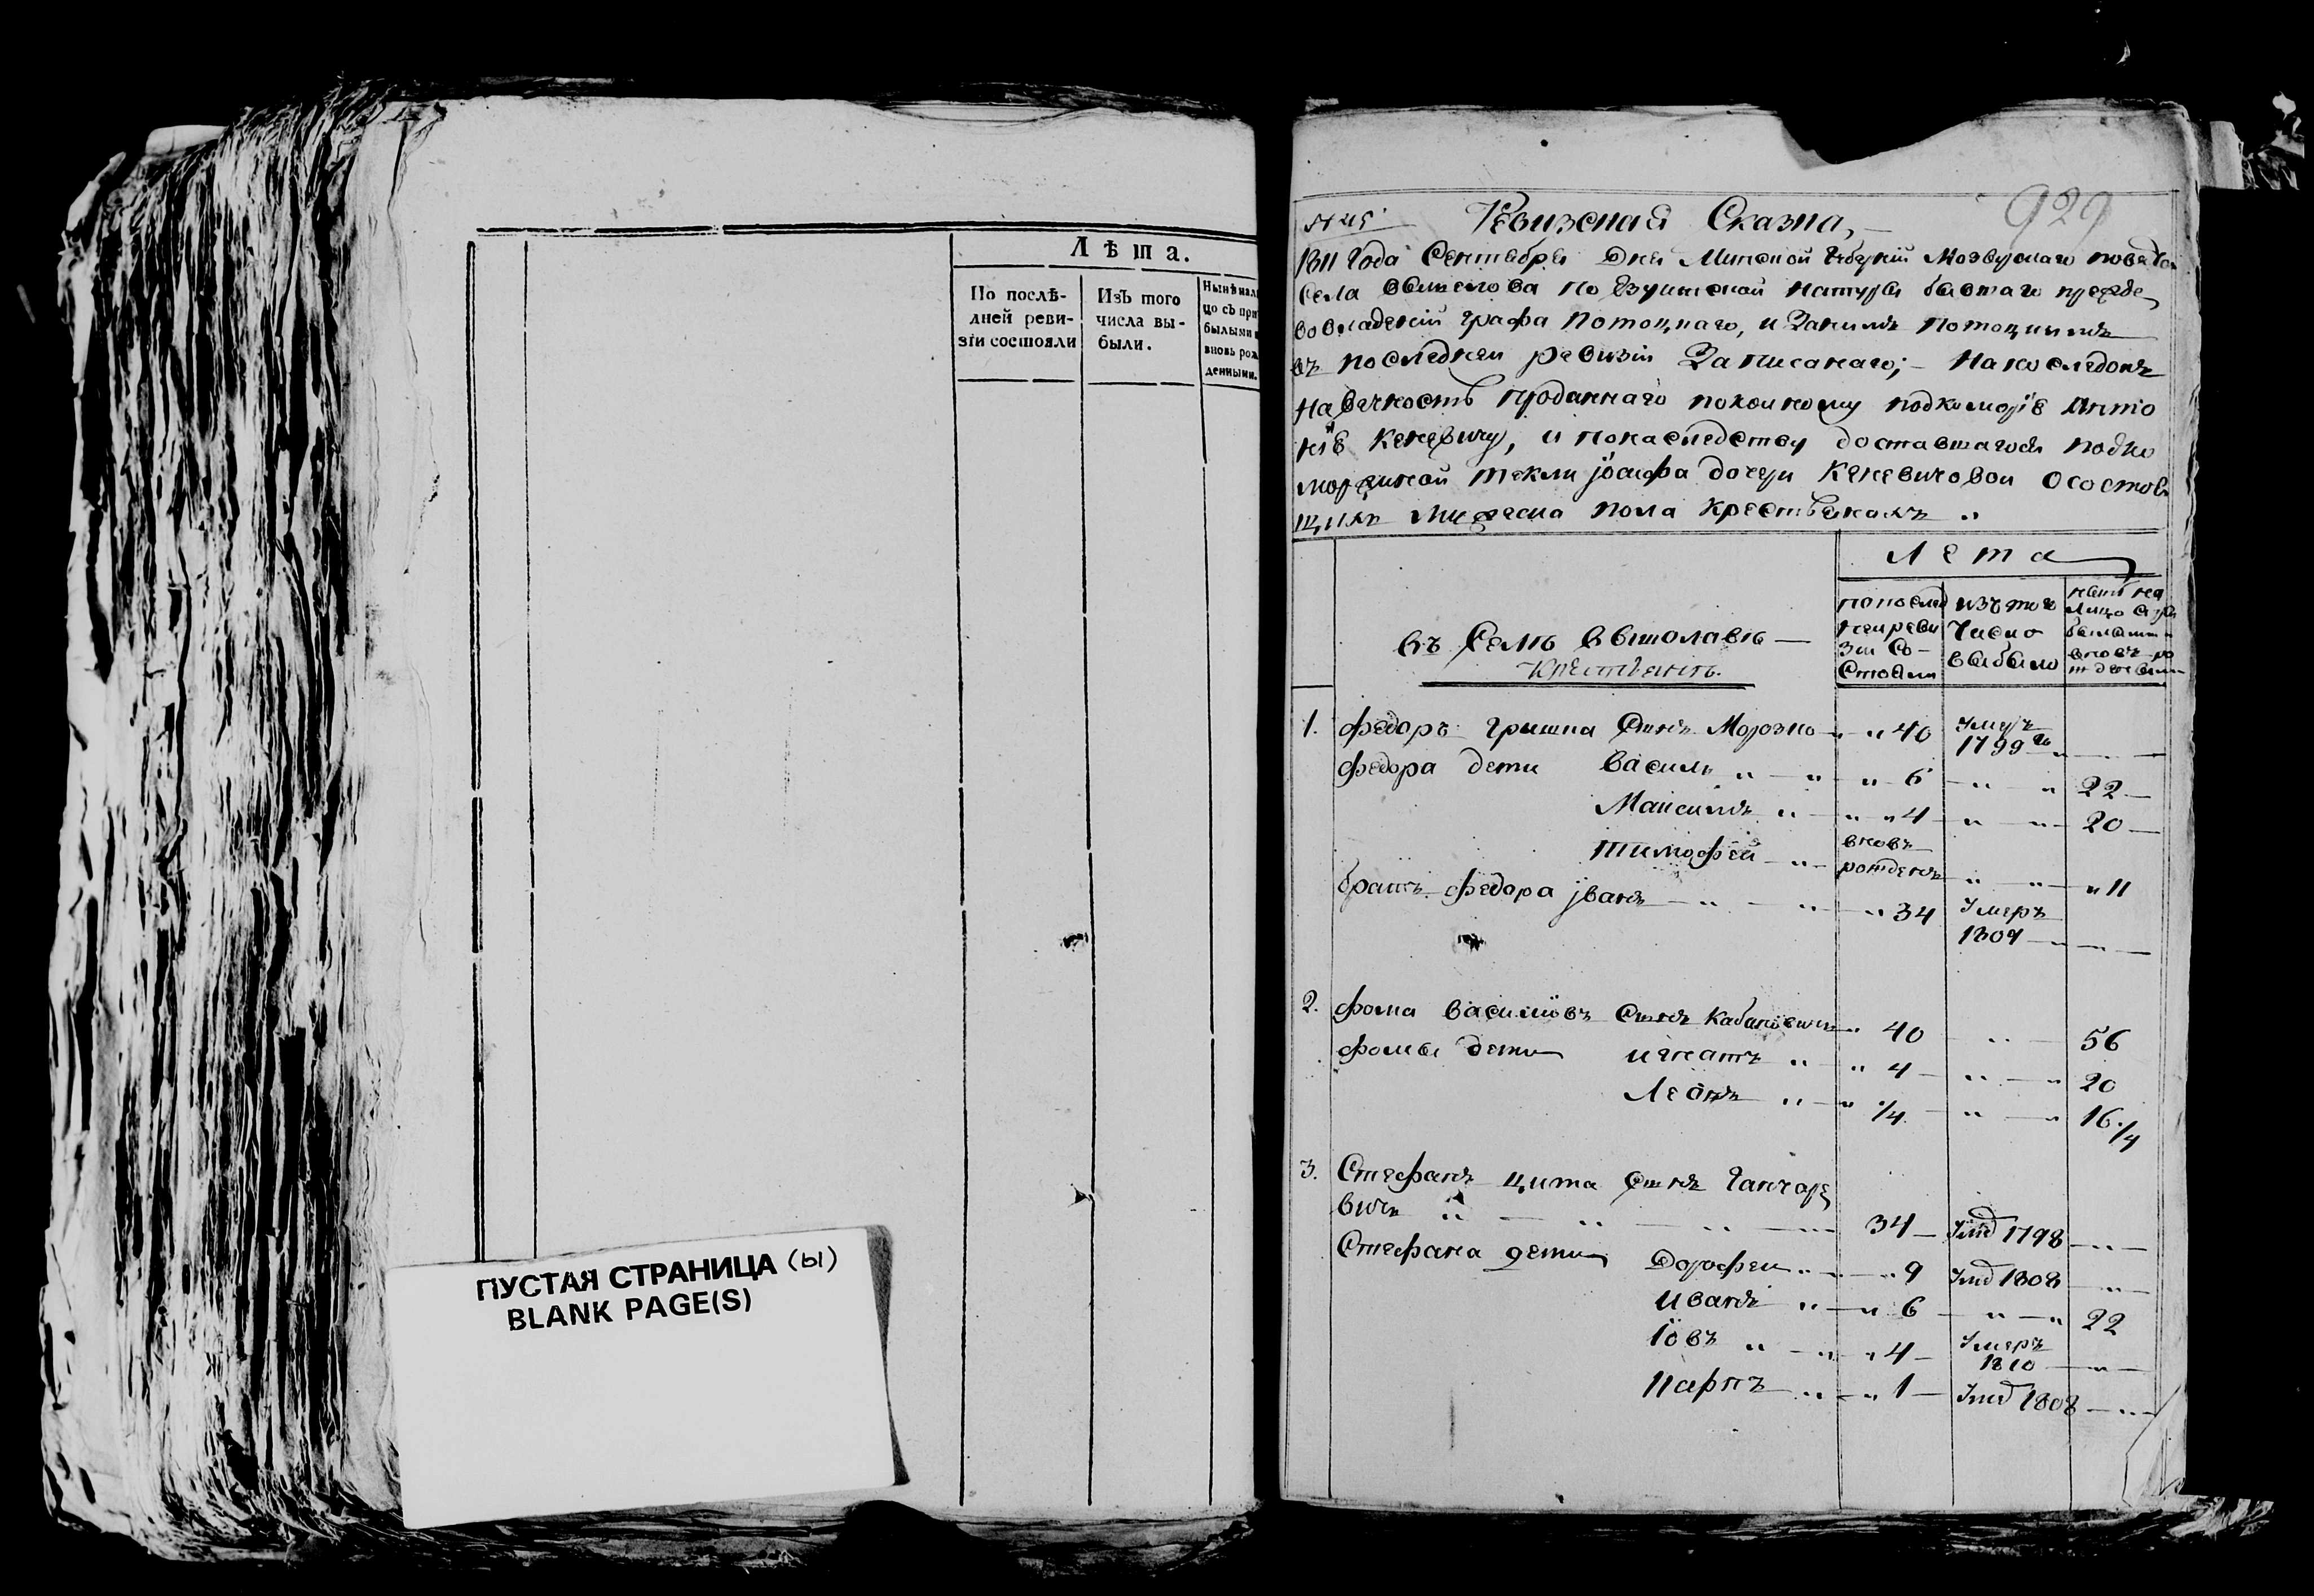 Лѣта.
По послѣ-
дней реви-
зіи состояли
Изъ того
числа вы-
были.
Нынѣ нал
цо съ при
былыми и
вновь рож
денными.
ПУСТАЯ СТРАНИЦА (ы)
BLANK PAGE(S)
929
Ревизская Сказка,
1811 Года Сентября Дня Минской Губерніи Мозырскаго повета
Села по Езуитской натуры бывшаго прежде
во владеніи графа Потоцкаго, и Заким Потоцкимъ
въ последней ревизіи Записанаго; - Напоследокъ
На вечность проданнаго покойному подкоморïю Анто
нïю Кеневичу, и понаследству доставшагося подко
морзиной Текли Їосифа дочери Кеневичовой О состоя
щихъ мужеска пола крестьянахъ „
Лета
въ Селѣ Вышолавѣ —
Крестьянъ.
по послед
ней реви
зіи Со-
стояли
изъ того
Число
выбыло
1. Федоръ Гришка Сынъ Морозко „ „ 40 умеръ
1799 го
Федора дети Василь „ „ „ 6 „ „ 22
Максимъ „ „ „ 4 „ „ 20
Тимофей „ вновь
рожденъ „ „ „ 11
братъ Федора Їванъ „ „ „ 34 Умеръ
1809
2. Фома Василïовъ Сынъ Кабановичъ „ 40 „ 56
Фомы дети Игнатъ „ „ 4 „ „ 20
Леонъ „ „ 1/4 „ „ 16 1/4
3. Стефанъ Цита Сынъ Ганчаре
вичъ „ „ „ 34 Умр 1798
Стефана дети Дорофей „ „ 9 Умр 1808
Иванъ „ „ 6 „ „ 22
Їовъ „ „ „ 4 Умеръ
1810
Карпъ „ „ 1 Умр 1808